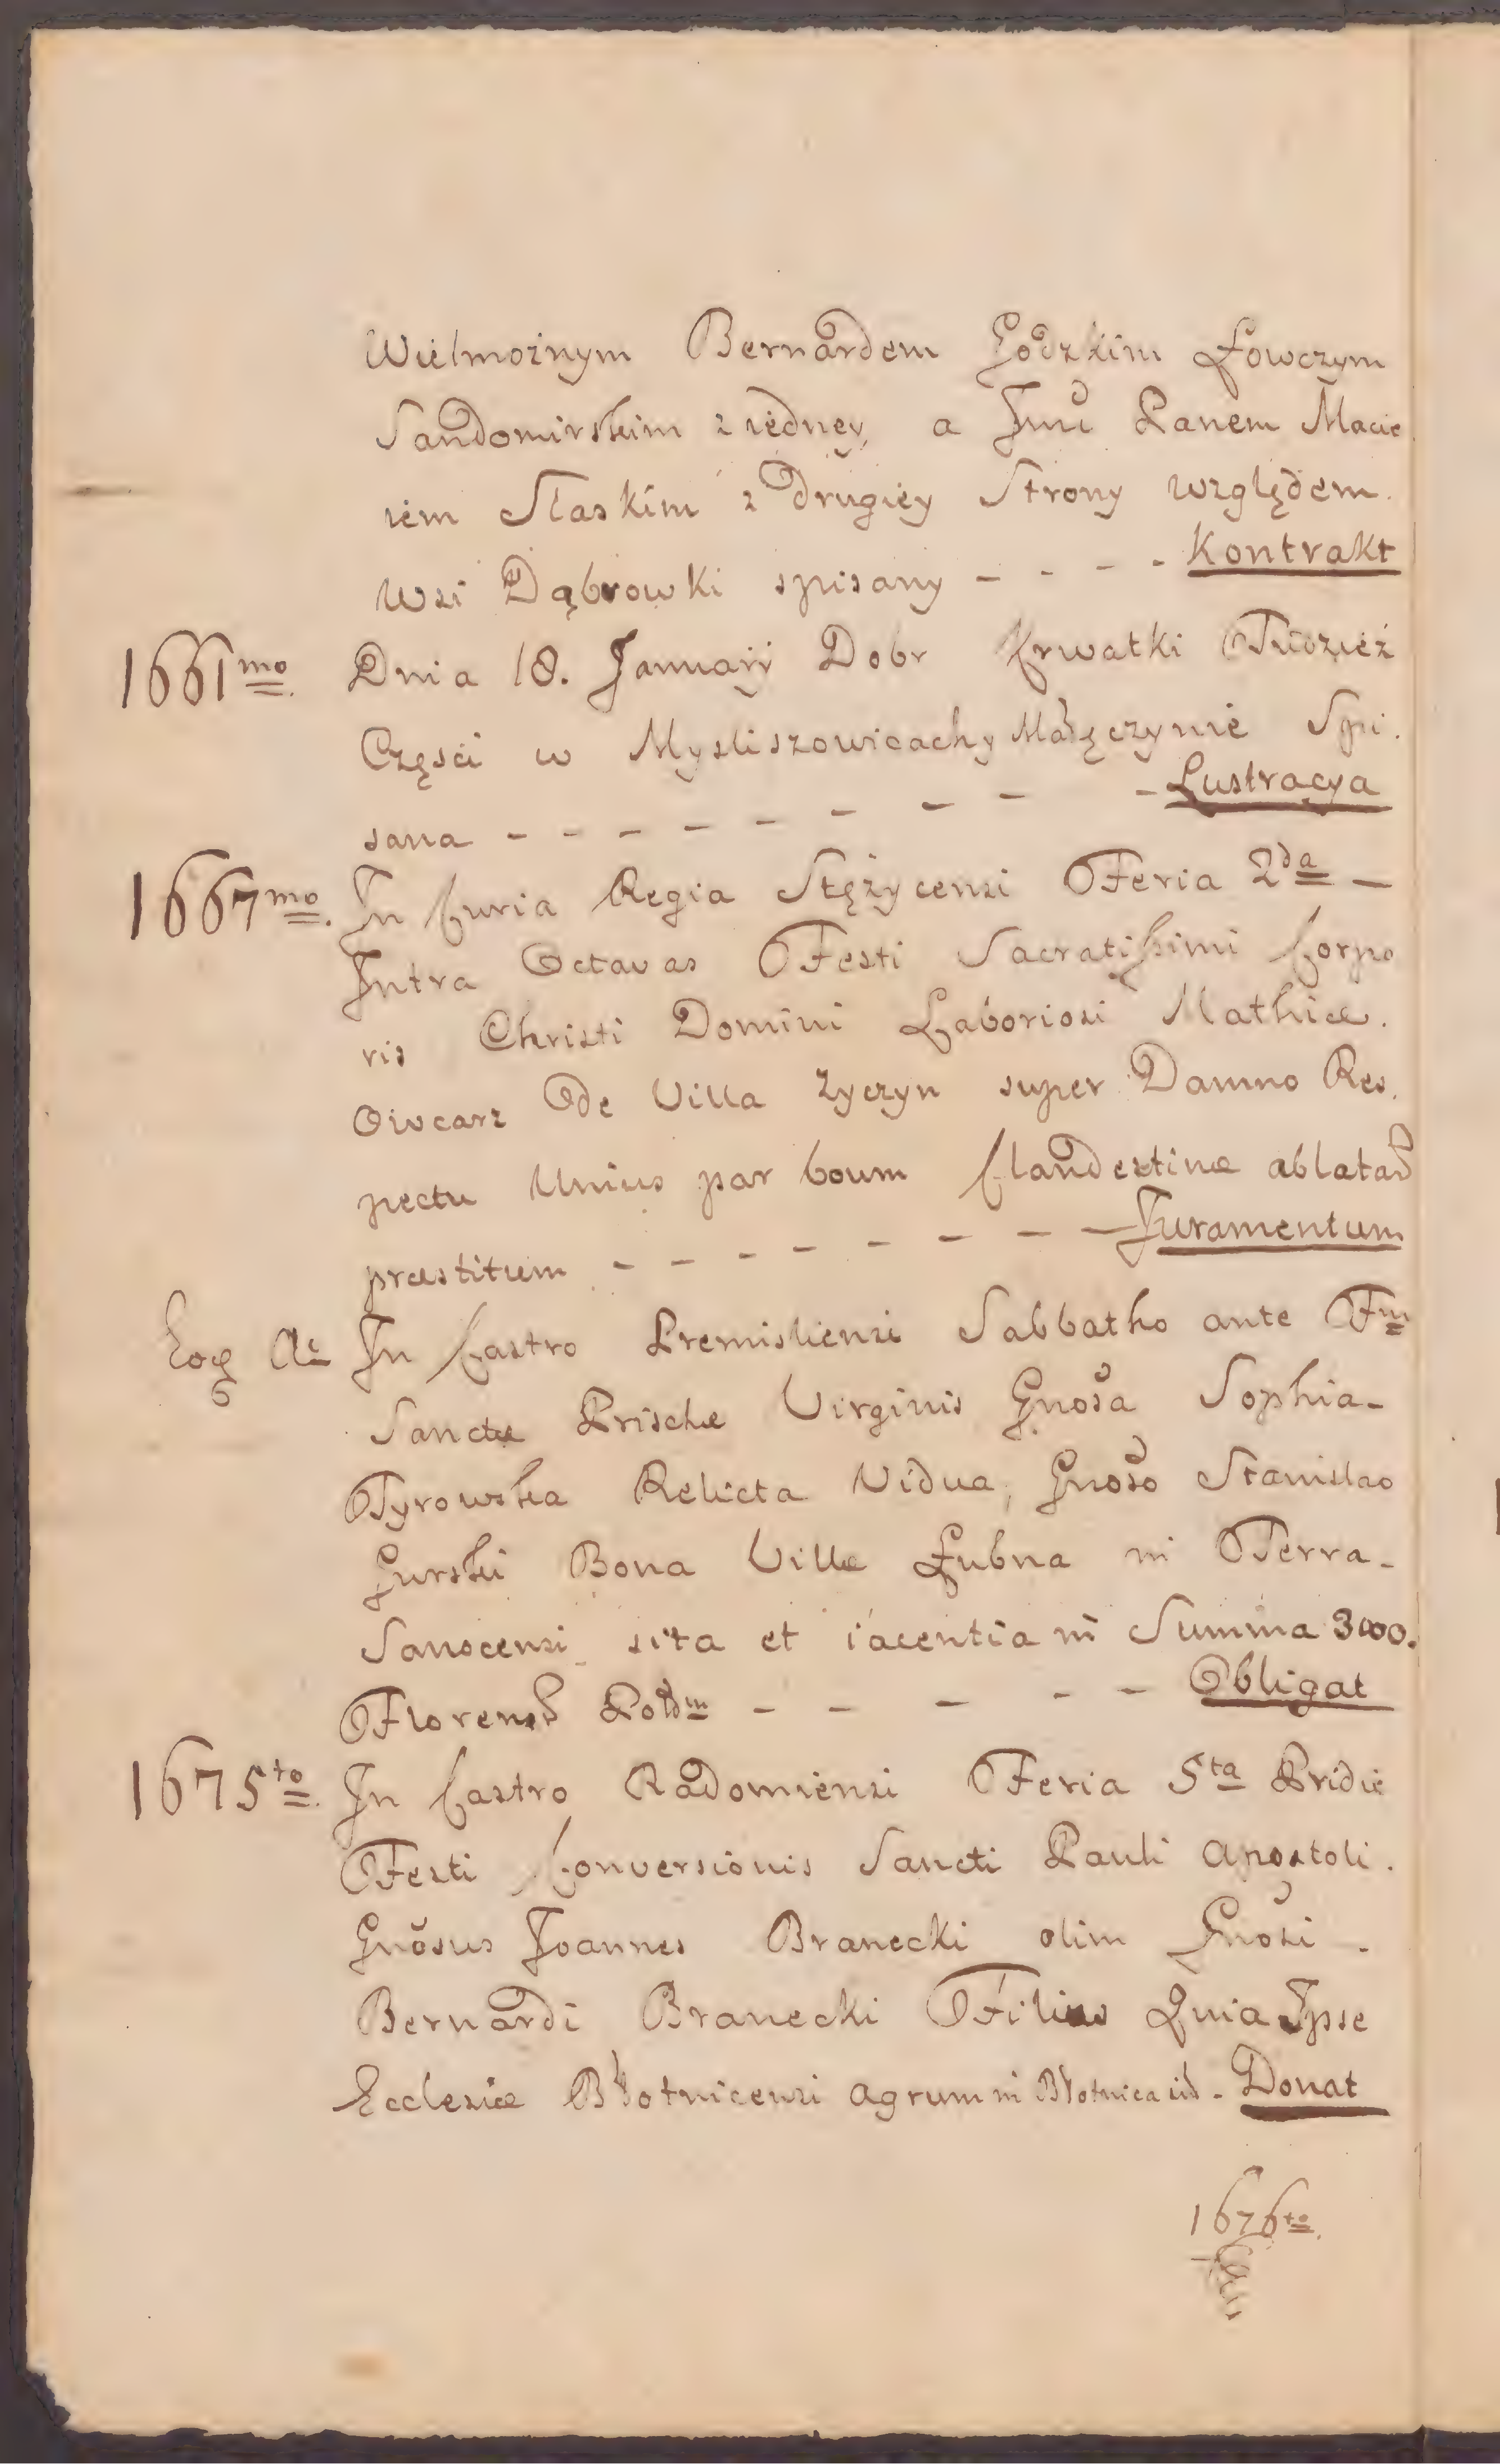 Wielmożnym Bernardem Godzkim Łowczym
Sandomirskim z iedney, a Jmć Panem Macie
iem Słaskim z drugiey Strony względem.
Wsi Dąbrowki spisany - - - - Kontrakt
1661mo Dnia 18. Januarij Dobr Krwatki Tudzież
Częsci w Mysliszowicach y Małęczynie Spi.
sana - - - - - - - - - - Lustracya
1667mo. In Curia Regia Stężycensi Feria 2da —
Intra Octavas Festi Sacratissimi Corpo
ris Christi Domini Laboriosi Mathiæ.
Owcarz de Villa Zyczyn super Damno Res.
pectu Unius par boum Clandestinæ ablatad
præstitum - - - - - - - — Juramentum
Eoq Ao In Castro Premisliensi Sabbatho ante Fm
Sanctæ Prischæ Virginis Gnosa Sophia-
Tyrowska Relicta Vidua, Gnoso Stanislao
Gurski Bona Villæ Łubna in Terra-
Sanocensi sita et iacentia in Summa 3000.
Florens Poldm - - - - - Obligat
1675to. In Castro Radomiensi Feria 5ta Pridie
Festi Conversionis Sancti Pauli Apostoli.
Gnosus Joannes Branecki olim Gnosi -
Bernardi Branecki Filius Quia Ipse
Ecclesiæ Błotnicensi agrum in Błotnica - Donat
1676to.